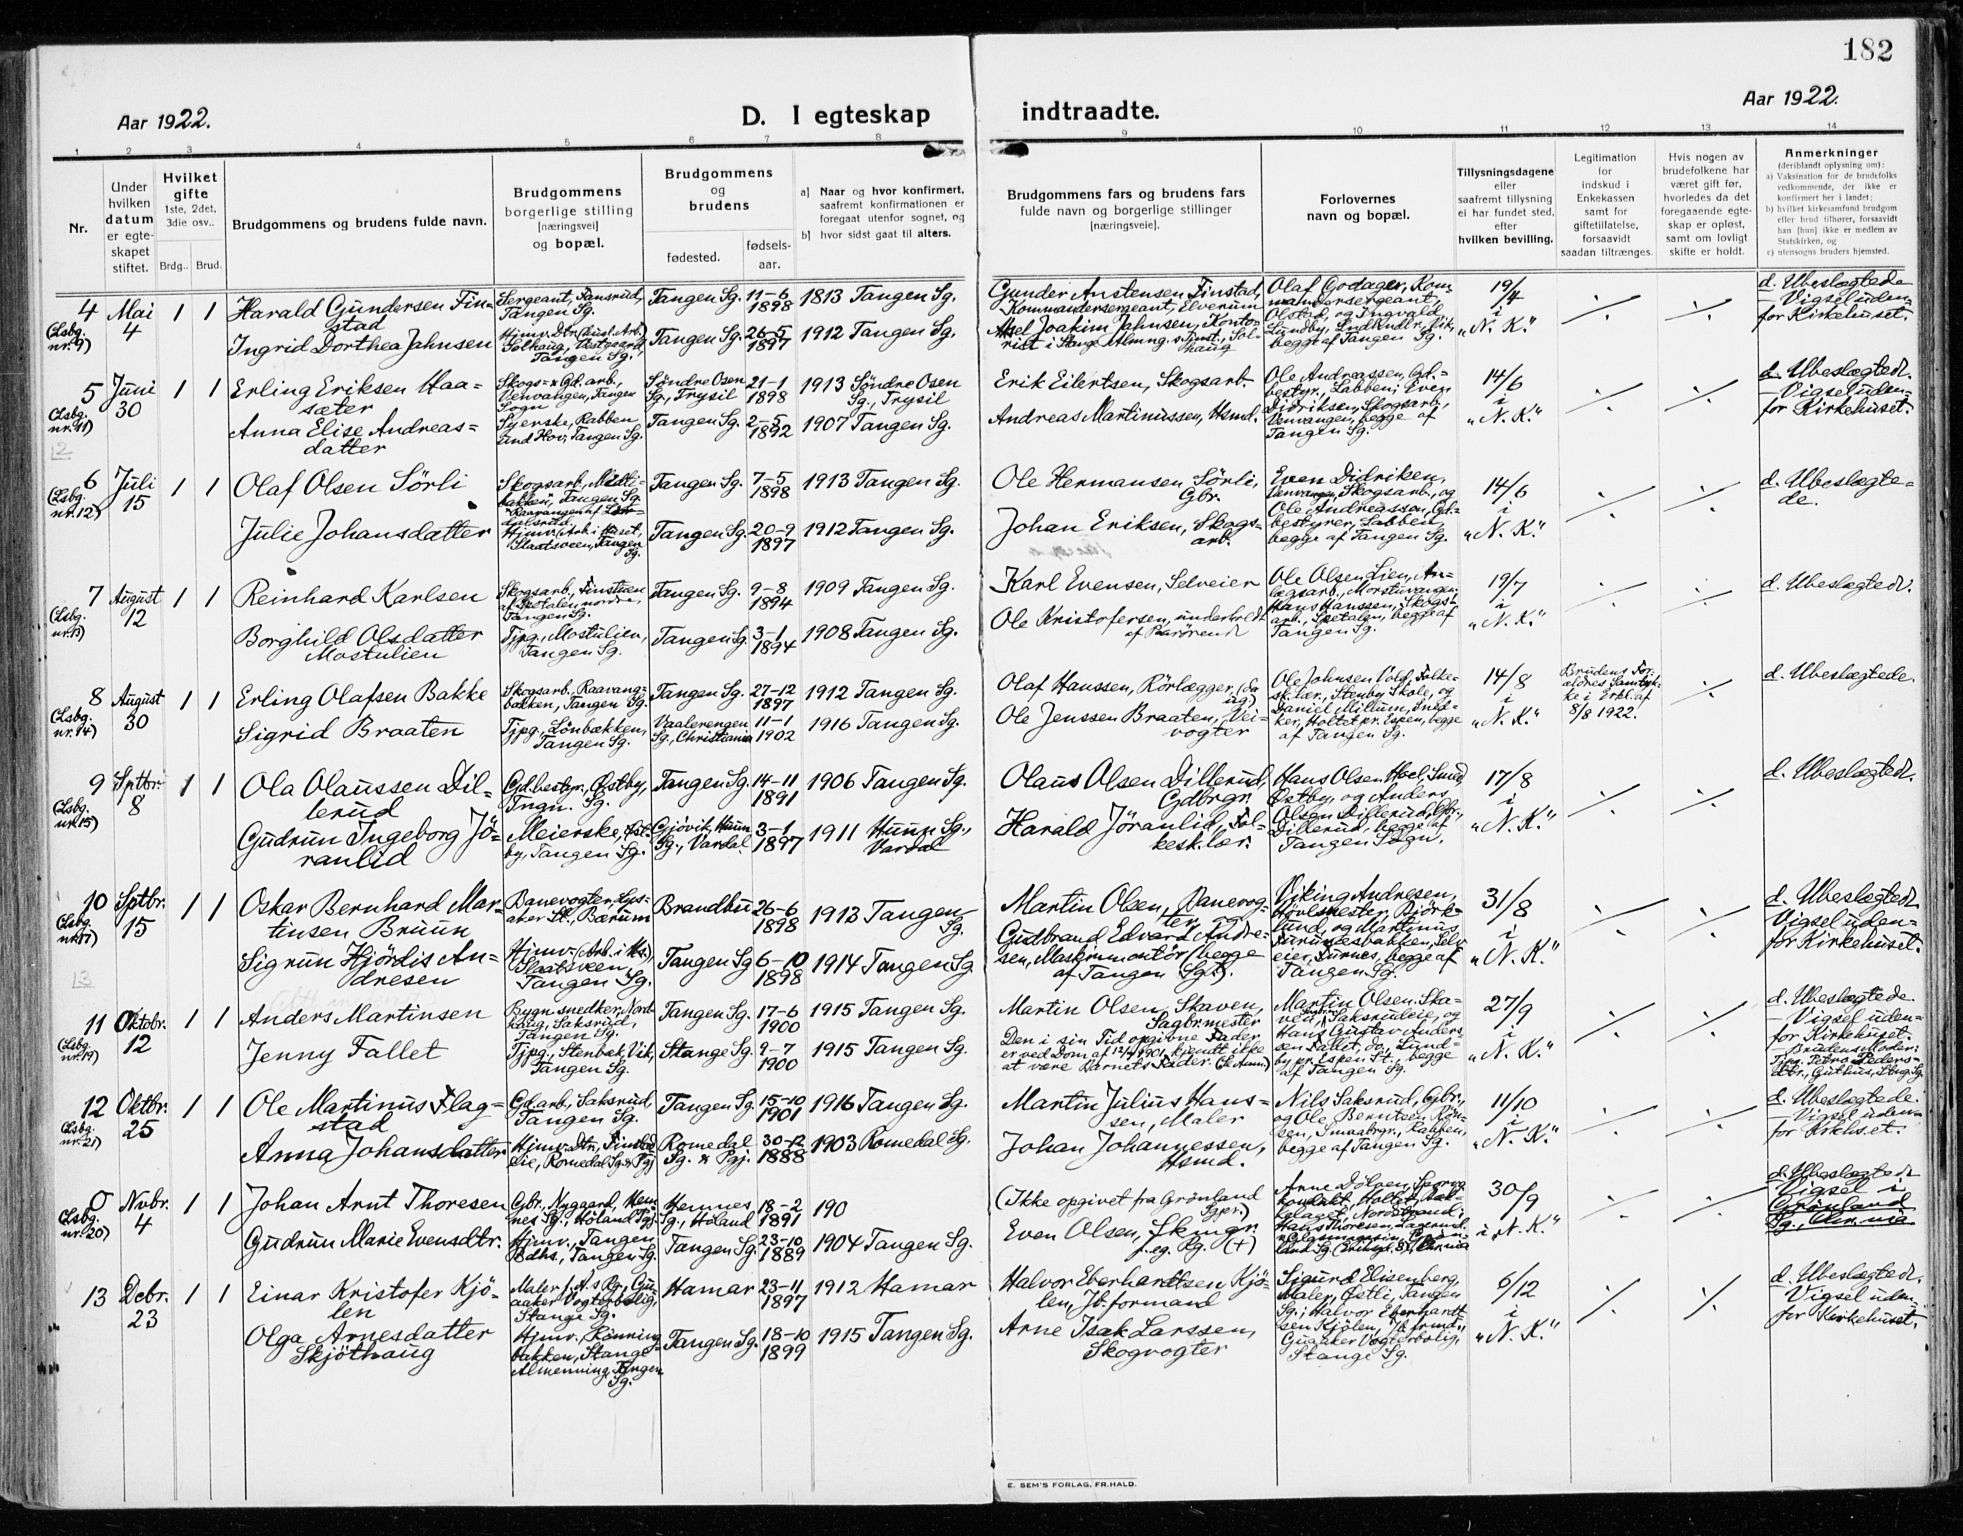 182
Aar 1922.
D. I egteskap
indtraadte.
Aar 1922.
1 2 3 4 5 6 7 8 9 10 11 12 13 14
Nr.
Under
hvilken
datum
er egte-
skapet
stiftet.
Hvilket
gifte
1ste, 2det,
3die osv..
Brdg.. Brud.
Brudgommens og brudens fulde navn.
Brudgommens
borgerlige stilling
[næringsvei]
og bopæl.
Brudgommens
og
brudens
fødested.
fødsels-
aar.
a] Naar og hvor konfirmert,
saafremt konfirmationen er
foregaat utenfor sognet, og
b] hvor sidst gaat til alters.
Brudgommens fars og brudens fars
fulde navn og borgerlige stillinger
[næringsveie].
Forlovernes
navn og bopæl.
Tillysningsdagene
eller
saafremt tillysning
ei har fundet sted,
efter
hvilken bevilling.
Legitimation
for
indskud i
Enkekassen
samt for
giftetillatelse,
forsaavidt
saadan tiltrænges.
Hvis nogen av
brudefolkene har
været gift før,
hvorledes da det
foregaaende egte-
skap er opløst,
samt om lovligt
skifte er holdt.
Anmerkninger
(deriblandt oplysning om):
a) Vaksination for de brudefolks
vedkommende, der ikke er
konfirmert her i landet;
b) hvilket kirkesamfund brudgom
eller brud tilhører, forsaavidt
han [hun] ikke er medlem av
Statskirken, og
c) utensogns bruders hjemsted.
4
(Lsbg.
nr. 9)
Mai
4
1 1
Harald Gundersen Fin-
stad
Ingrid Dorthea Jahnsen
Sergeant, Tansrud,
Tangen Sg.
Solhaug, Vestgaard,
Tangen Sg.
Tangen Sg. 11-6
1898
1813 Tangen Sg.
Tangen Sg. 26-5
1897
1912 Tangen Sg.
Gunder Anstensen Finstad,
Kommandersergeant, Elverum
Axel Joakim Jahnsen, Konto-
rist i Stange Almng. Sol-
haug
Olaf Godager, Kom-
mandersergeant,
Olstad, og Ingvald
Lundby, Vik,
begge af Tangen Sg.
19/4
i
"N. K."
d. Ubeslægtede
— Vigsel uden-
for Kirkehuset.
5
(Lsbg.
nr. 11)
Juni
30
1 1
Erling Eriksen Haa-
sæter
Anna Elise Andreas-
datter
Skogs- & Gd. arb.,
Venvangen, Tangen
Sogn
Syerske, Rabben
und Hov, Tangen Sg.
Søndre Osen
Sg., Trysil
21-1
1898
1913 Søndre Osen
Sg., Trysil
Tangen Sg. 2-5
1892
1907 Tangen Sg.
Erik Eilertsen, Skogsarb.
Andreas Martinussen, Hsmd.
Ole Andreassen, Gd.-
bestyr., Labben; Even
Didriksen, Skogsarb.,
Venvangen, begge af
Tangen Sg.
14/6
i
"N. K."
d. Ubeslægted.
— Vigsel uden-
for Kirkehuset.
6
(Lsbg.
nr. 12)
Juli
15
1 1
Olaf Olsen Sörli
Julie Johansdatter
Tangen Sg. 7-5
1898
1913 Tangen Sg.
Tangen Sg. 20-9
1897
1912 Tangen Sg.
Ole Hermansen Sörli,
Gbr.
Johan Eriksen, Skogs-
arb.
Even Didriken,
Venvangen, Skogsarb., og
Ole Andreassen, Gd.-
bestyrer, Labben,
begge af Tangen Sg.
14/6
i
"N. K."
d. Ubeslægte-
de.
7
(Lsbg.
nr. 13)
August
12
1 1
Reinhard Karlsen
Borghild Olsdatter
Mostulien
Skogsarb., Finstuen
af Spetalen nordre,
Tangen Sg.
Tjpg., Mostulien,
Tangen Sg.
Tangen Sg. 9-8
1894
1909 Tangen Sg.
Tangen Sg. 3-1
1894
1908 Tangen Sg.
Karl Evensen, Selveier
Ole Kristofersen, underholdt
Ole Olsen Lien, An-
lægsarb., Morstuvangen;
Hans Hanssen, Skogs-
arb., Spetalen, begge af
Tangen Sg.
19/7
i
"N. K."
d. Ubeslægted.
8
(Lsbg.
nr. 14)
August
30
1 1
Erling Olafsen Bakke
Sigrid Braaten
Skogsarb., Raavang-
bakken, Tangen Sg.
Tjpg., Lönbækken,
Tangen Sg.
Tangen Sg. 27-12
1897
1912 Tangen Sg.
Vaalerengen
Sg., Christiania
11-1
1902
1916 Tangen Sg.
Olaf Hanssen, Rörlægger (da
ug)
Ole Jenssen Braaten, Vei-
vogter
Ole Johnsen Vold, Folke-
sk.lær., Stenby Skole, og
Daniel Millum, Sned-
ker, Holtet pr. Espen, begge
af Tangen Sg.
14/8
i
"N. K."
Brudens For-
ældres Samtyk-
ke i Erkl. af
8/8 1922.
d. Ubeslægtede.
9
(Lsbg.
nr. 15)
Sptbr.
8
1 1
Ola Olaussen Dil-
lerud
Gudrun Ingeborg Jö-
ranlid
Gd.bestyr., Østby,
Tngn. Sg.
Meierske, Øst-
by, Tangen Sg.
Tangen Sg. 14-11
1891
1906 Tangen Sg.
Gjövik, Hunn
Sg., Vardal
3-1
1897
1911 Hunn Sg.,
Vardal
Olaus Olsen Dillerud,
Gdbrgr.
Harald Jöranlid, Fol-
kesk.lær.
Hans Olsen Hoel, Smed,
Østby, og Anders
Olsen Dillerud, Gbr.,
Dillerud, begge af
Tangen Sogn.
17/8
i
"N. K."
d. Ubeslægted.
10
(Lsbg.
nr. 17)
Sptbr.
15
1 1
Oskar Bernhard Mar-
tinsen Bruun
Sigrun Hjördis An-
dresen
Banevogter, Lys-
aker St., Bærum
Hjmv. (Arb. i Hs.)
Plaatsveen,
Tangen Sg.
Brandbu 26-6
1898
1913 Tangen
Sg.
Tangen Sg 6-10
1898
1914 Tangen Sg.
Martin Olsen, Banevog-
ter, og
Gudbrand Edvard Andre-
sen, Maskinmontör (begge
af Tangen Sg.).
Viking Andresen,
Hövlmester, Björk-
lund, og Martinus
Furunesbakken, Selv-
eier, Furnes, begge af
Tangen Sg.
31/8
i
"N. K."
d. Ubeslægted.
Vigsel uden-
for Kirkehuset.
11
(Lsbg.
nr. 19)
Oktobr.
12
1 1
Anders Martinsen
Jenny Fallet
Bygn.snedker, Nord-
haug, Saksrud,
Tangen Sg.
Tjpg., Stenbæk, Vik,
Tangen Sg.
Tangen Sg. 17-6
1900
1915 Tangen Sg.
Stange Sg. 9-7
1900
1915 Tangen Sg.
Martin Olsen, Skaven,
Sagbr.mester
Den i sin Tid opgivne Fader
er ved Dom af 12/9 1901 kjendt ikke
at være Barnets Fader. (Se Anm.)
Martin Olsen Ska-
ven, Saksrudeie, og
Hans Gustav Anders-
sen Fallet, do., Lund-
by pr. Espen St., begge
af Tangen Sg.
27/9
i
"N. K."
d. Ubeslægtede.
— Vigsel uden-
for Kirkehuset.
Brudens Moder:
Tjpg. Petra Peders-
dtr., Guthus, Stng. Sg.
12
(Lsbg.
nr. 21)
Oktbr.
25
1 1
Ole Martinus Flag-
stad
Anna Johansdatter
Gd.arb., Saksrud,
Tangen Sg.
Hjmv. Dtr., Finstad-
eie, Romedal Sg. & Pgj.
Tangen Sg. 15-10
1901
1916 Tangen Sg.
Romedal
Sg. & Pgj.
30-12
1888
1903 Romedal Sg.
Martin Julius Hans-
sen, Maler
Johan Johannessen,
Hsmd.
Nils Saksrud, Gbr.,
og Ole Berntsen Rön-
sen, Smaabrgr., Rabben,
begge af Tangen Sg.
11/10
i
"N. K."
d. Ubeslægtede.
— Vigsel uden-
for Kirkhset.
0
(Lsbg.
nr. 20)
Nvbr.
4
1 1
Johan Arnt Thoresen
Gudrun Marie Evensdtr.
Gbr., Nygaard, Hem-
nes Sg., Höland Pgj.
Hjmv., Tangen
Bdhs., Tangen Sg.
Hemnes
Sg., Höland
18-2
1891
190
Tangen Sg. 23-10
1889
1904 Tangen Sg.
(Ikke opgivet fra Grönland
Sgpr.)
Even Olsen,
(+)
30/9
i "N. K."
d. Ubeslægted
Vigsel i
Grönland
Sg., Chr.nia
13
Debr.
23
1 1
Einar Kristofer Kjö-
len
Olga Arnesdatter
Skjöthaug
Stange Sg.
Hjmv., Rönning-
bakken, Stange
Almenning, Tangen
Sg.
Hamar 23-11
1897
1912 Hamar
Tangen Sg. 18-10
1899
1915 Tangen Sg.
Halvor Eberhardtsen Kjö-
len, Jb.formand
Arne Isak Larssen,
Skogvogter
Sigurd Elisenberg,
Maler, Østli, Tangen
Sg.; Halvor Eberhardt-
sen Kjölen, Jb.frmd.,
Guaaker Vogterbolig,
Stange Sg.
6/12
i
"N. K."
d. Ubeslægted.
— Vigsel uden-
for Kirkehuset.
E. SEM'S FORLAG, FR.HALD.